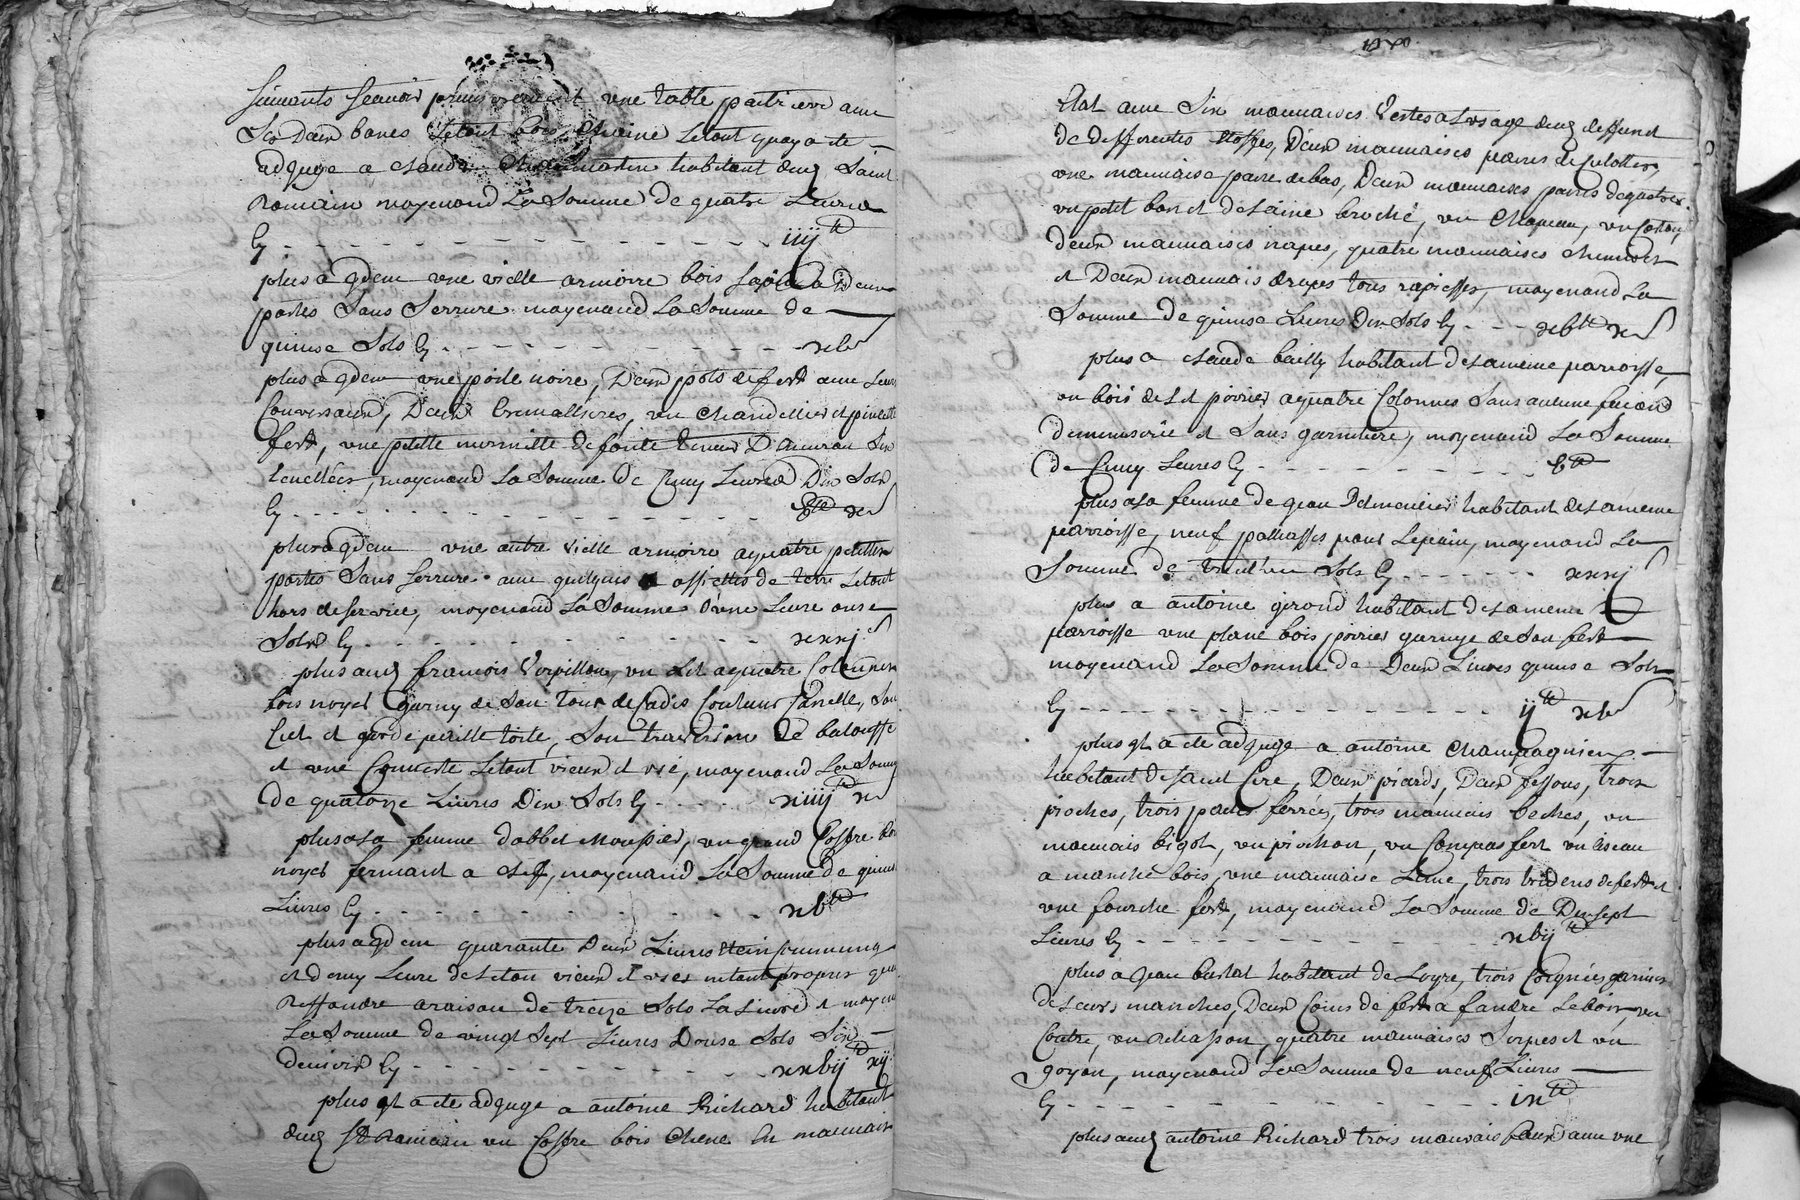 suivants scavoir premierement une table patri avec
Ses deux bancs Letout bois Chaine Letout quay a ete
adjuge a Claude Martin habitant dud Saint
Romain moyenand La Somme de quatre Livres
Cy - - - - - iiij tt
plus a qdem une vielle armoire bois Sapin a Deux
portes Sans Serrure moyenand La Somme de
quinse Sols Cy - - - - - xv s
plus a qdem une poile noire, Deux pots de fert avec Leurs
Couversaux, Deux Cremallieres, un Chandellier et pincette
fert, une petitte marmitte de fonte tenant D'Environ Six
Ecuellées, moyenand La Somme De Cinq Livres Dix Sols
Cy - - - - - v tt x s
plus a qdem une autre vielle armoire aquatre petittes
portes Sans Serrure avec quelques assiettes de terre Letout
hors de service, moyenand La Somme d'une Livre onse
Sols Cy - - - - - xxxj s
plus aud francois Vorpillon, un Lit aquatre Colonnes
bois noyer garny de Son tour de Cadis Couleur Canelle, Son
Ciel et garde paille toile, Son traversin de balouffe
et une Couverte Letout vieux et usé, moyenand La Somme
De quatorze Livres Dix Sols Cy - - - xiiij tt x s
plus a La femme d'abbel Moupier, un grand Coffre bois
noyer fermant a clef, moyenand La Somme de quinse
Livres Cy - - - - - xv tt
plus a qdem quarante Deux Livres Etein
et demy Livre de Leton vieux et usés netant propres qua
Reffondre a raison de treize Sols La Livre et moyenand
La Somme de vingt Sept Livres Douse Sols Six
deniers Cy - - - - - xxvij tt xij s
plus qt a ete adjuge a antoine Richard habitant
dud St Romain un Coffre bois Chene En mauvais
Etat avec Six mauvaises Vestes a Lusage dud deffunt
de differentes Etoffes, Deux mauvaises paires de Culottes,
une mauvaise paire de bas, Deux mauvaises paires deguetres
un petit bonet de Laine broché, un Chapeau, un Coston,
deux mauvaises napes, quatre mauvaises chemises
et Deux mauvais draps tous rapiessés, moyenand La
Somme de quinse Livres Dix Sols Cy - - - xv tt x s
plus a Claude bailly habitant de Lameme parroisse,
un bois de Lit poirier, aquatre Colonnes Sans aucune facon
De menuserie et Sans garniture, moyenand La Somme
de Cinq Livres Cy - - - - - v tt
plus a La femme de jean Delmenier habitant de Lameme
parroisse, neuf paillasses pour Lepain, moyenand La
Somme de trent'un Sols Cy - - - - - xxxj s
plus a antoine girond habitant de Lameme
parroisse une plane bois poirier garnye de Son fert
moyenand La Somme de Deux Livres quinse Sols
Cy - - - - - ij tt xv s
plus qt a ete adjuge a antoine Champagnieu
habitant de saint Cire, Deux piards, Deux fessous, trois
pioches, trois pales ferrées, trois mauvais beches, un
mauvais bigot, un piochon, un Compas fert un Ciseau
a manche bois, une mauvaise Lime, trois tridens de fert et
une fourche fert, moyenand La Somme de Dix sept
Livres Cy - - - - - xvij tt
plus a jean barlat habitant de Loyre, trois Coignées garnies
de Leurs manches, Deux Coins de fert a fandre Lebois, un
Coutre, un Achasson, quatre mauvaises Serpes et un
goyon, moyenand La Somme de neuf Livres
Cy - - - - - ix tt
plus aud antoine Richard trois mauvais faux avec une